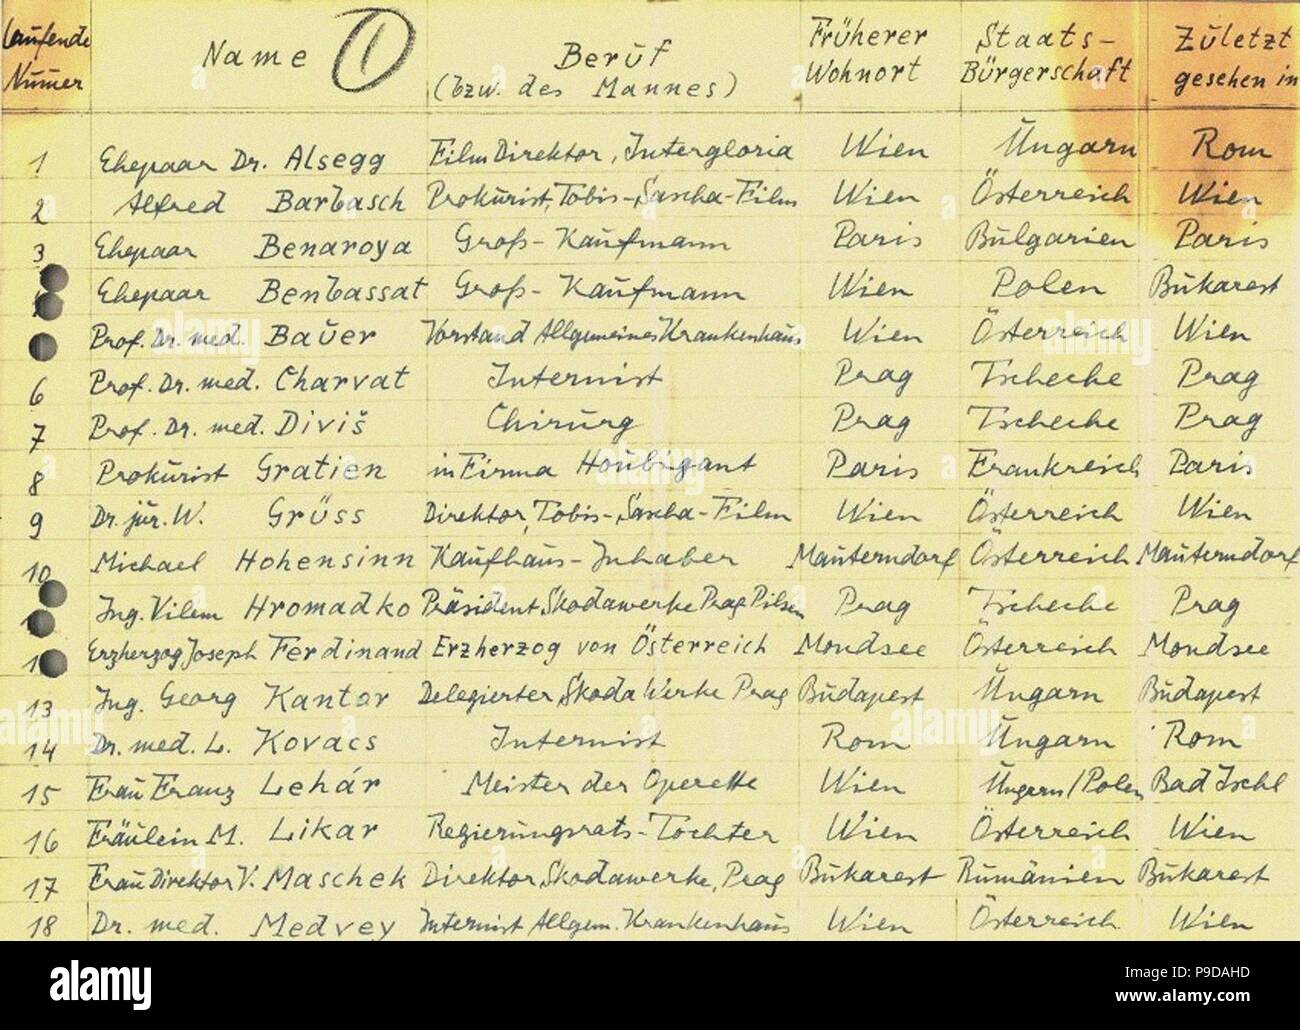 Laufende Numer | Name ① | Beruf (bzw. des Mannes) | Früherer Wohnort | Staats-Bürgerschaft | Zuletzt gesehen in
1 | Ehepaar Dr. Alsegg | Film Direktor, Intergloria | Wien | Ungarn | Rom
2 | Alfred Barbasch | Prokurist, Tobis-Sascha-Film | Wien | Österreich | Wien
3 | Ehepaar Benaroya | Groß-Kaufmann | Paris | Bulgarien | Paris
Ehepaar Benbassat | Groß-Kaufmann | Wien | Polen | Bukarest
Prof. Dr. med. Bauer | Vorstand Allgemeines Krankenhaus | Wien | Österreich | Wien
6 | Prof. Dr. med. Charvat | Internist | Prag | Tscheche | Prag
7 | Prof. Dr. med. Diviš | Chirurg | Prag | Tscheche | Prag
8 | Prokurist Gratien | in Firma Houbigant | Paris | Frankreich | Paris
9 | Dr. jur. W. Grüss | Direktor, Tobis-Sascha-Film | Wien | Österreich | Wien
10 | Michael Hohensinn | Kaufhaus-Inhaber | Mauterndorf | Österreich | Mauterndorf
Ing. Vilem Hromadko | Präsident Skodawerke Prag Pilsen | Prag | Tscheche | Prag
Erzherzog Joseph Ferdinand | Erzherzog von Österreich | Mondsee | Österreich | Mondsee
13 | Ing. Georg Kantor | Delegierter Skoda Werke Prag | Budapest | Ungarn | Budapest
14 | Dr. med. L. Kovacs | Internist | Rom | Ungarn | Rom
15 | Frau Franz Lehár | Meister der Operette | Wien | Ungarn/Polen | Bad Ischl
16 | Fräulein M. Likar | Regierungsrats-Tochter | Wien | Österreich | Wien
17 | Frau Direktor V. Maschek | Direktor Skodawerke, Prag | Bukarest | Rumänien | Bukarest
18 | Dr. med. Medvey | Internist Allgem. Krankenhaus | Wien | Österreich | Wien
alamy
Image ID: P9DAHD
www.alamy.com